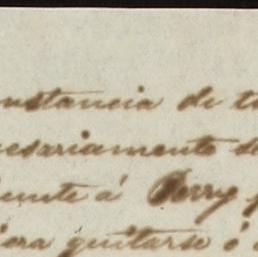 nstancia de t
esariamente se
ente á Perry
era quitarse ó